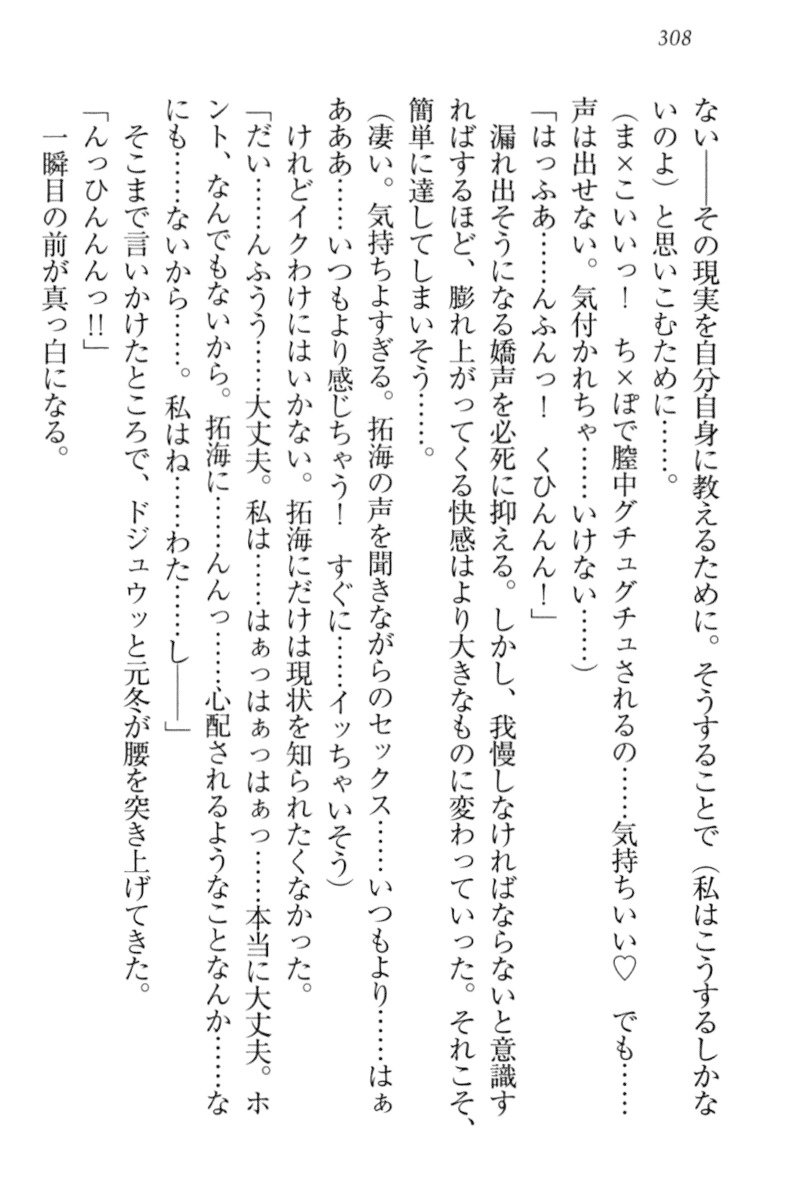 308
ない――その現実を自分自身に教えるために。そうすることで（私はこうするしかな
いのよ）と思いこむために……。
（ま×こいいっ！　ち×ぽで膣中グチュグチュされるの……気持ちいい♡　でも……
声は出せない。気付かれちゃ……いけない……）
「はっふあ……んふんっ！　くひんんん！」
漏れ出そうになる嬌声を必死に抑える。しかし、我慢しなければならないと意識す
ればするほど、膨れ上がってくる快感はより大きなものに変わっていった。それこそ、
簡単に達してしまいそう……。
（凄い。気持ちよすぎる。拓海の声を聞きながらのセックス……いつもより……はぁ
あああ……いつもより感じちゃう！　すぐに……イッちゃいそう）
けれどイクわけにはいかない。拓海にだけは現状を知られたくなかった。
「だい……んふうう……大丈夫。私は……はぁっはぁっはぁっ……本当に大丈夫。ホ
ント、なんでもないから。拓海に……んんっ……心配されるようなことなんか……な
にも……ないから……。私はね……わた……し――」
そこまで言いかけたところで、ドジュウッと元冬が腰を突き上げてきた。
「んっひんんんっ!!」
一瞬目の前が真っ白になる。